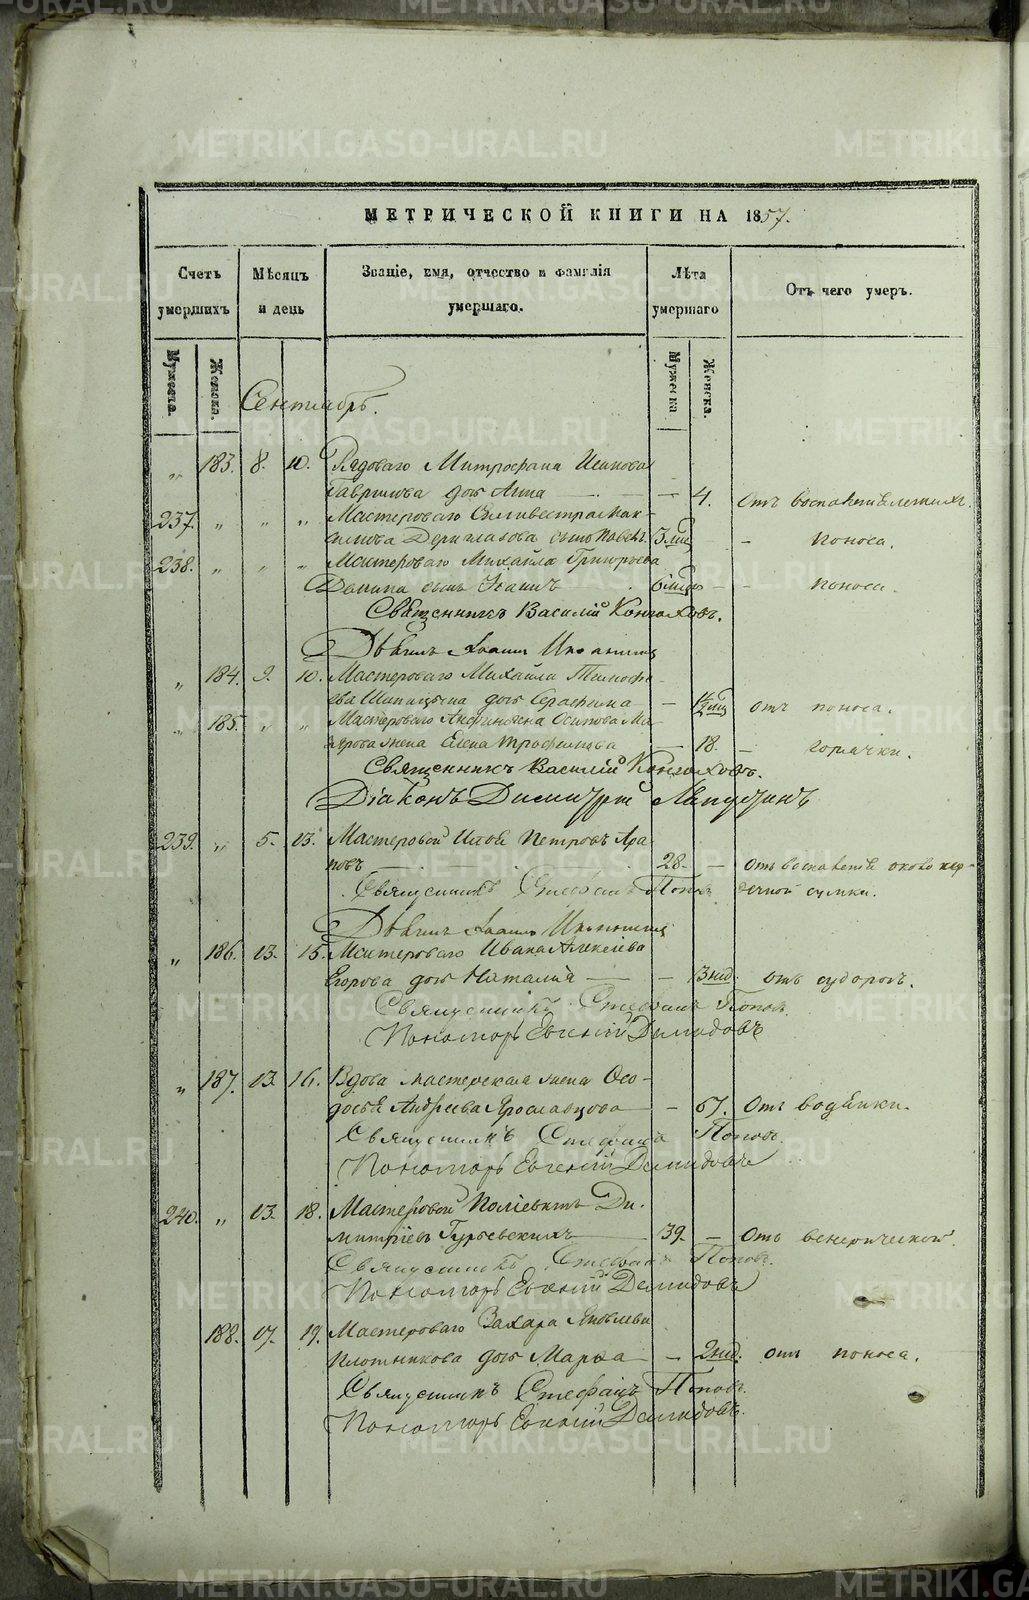 МЕТРИЧЕСКОЙ КНИГИ НА 1857.
Счетъ умершихъ
Мѣсяцъ и день
Званіе, имя, отчество и фамилія умершаго.
Лѣта умершаго
Отъ чего умеръ.
Мужеска.
Женска.
Мужеска
Женска.
Сентябрь.
„ 183. 8. 10. Рядоваго Митрофана
Гаврилова дочь Анна — 4. Отъ воспаленія легкихъ.
237. „ „ „ Мастероваго Селивестра Мак-
симова сынъ Павелъ 3. мѣс - поноса.
238. „ „ „ Мастероваго Михайла Григорьева
сынъ Іоаннъ 6 мѣс - - поноса.
Священникъ Василій Конюховъ.
Дьячекъ Іоаннъ
„ 184. 9. 10. Мастероваго Михайла Тимофе-
ева дочь Серафима - 1½ мѣс отъ поноса.
„ 185. „ „ Мастероваго Осипова Ма-
жена Елена Трофимова — 18. - горячки.
Священникъ Василій Конюховъ.
Діаконъ Димитрій
239. „ 5. 13. Мастеровой Петровъ Ара-
повъ — 28. - Отъ воспаленія около сер-
Священникъ Стефанъ Поповъ дечной сумки.
Дьячекъ Іоаннъ
„ 186. 13. 15. Мастероваго Ивана Алексѣева
Егорова дочь Наталія — - 3 нед. отъ судорогъ.
Священникъ Стефанъ Поповъ.
Пономарь Евгеній Демидовъ
„ 187. 13. 16. Вдова мастерская жена Ѳео-
досья Андреева Ярославцова - 67. Отъ водянки.
Священникъ Стефанъ Поповъ.
Пономарь Евгеній Демидовъ
240. „ 13. 18. Мастеровой Поліевктъ Ди-
митріевъ Гурьевскихъ 39. - Отъ венерической.
Священникъ Стефанъ Поповъ.
Пономарь Евгеній Демидовъ
188. 17. 19. Мастероваго Захара Яковлева
Плотникова дочь Марѳа - 2 нед. отъ поноса.
Священникъ Стефанъ Поповъ.
Пономарь Евгеній Демидовъ.
METRIKI.GASO-URAL.RU